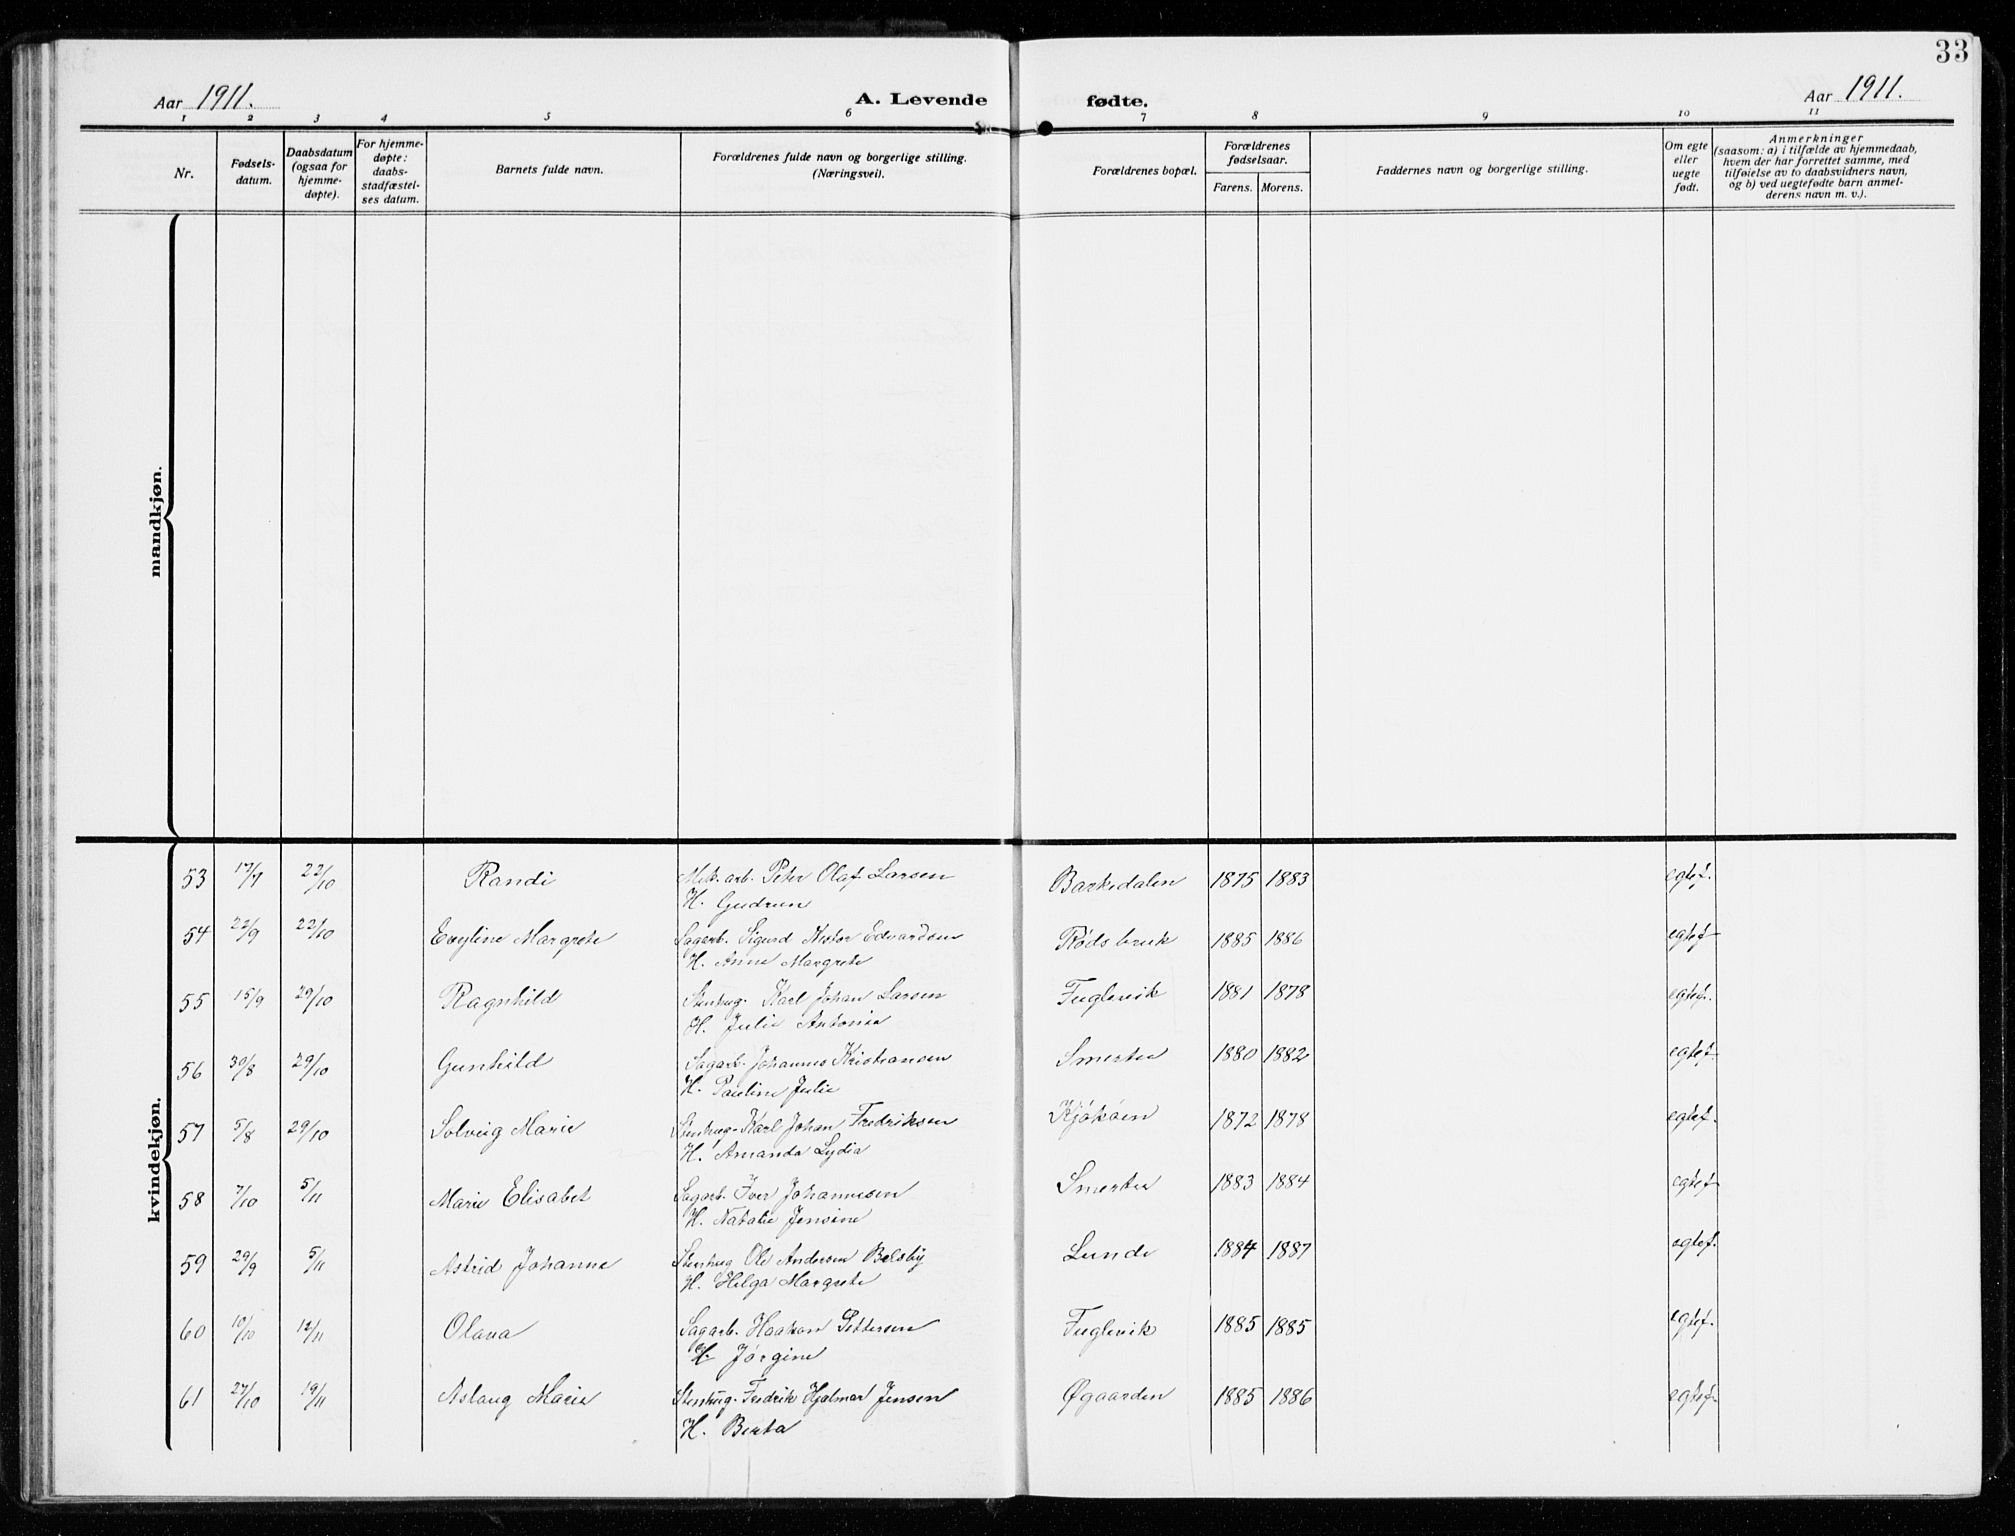 33
Aar 1911.
A. Levende fødte.
Aar 1911.
1 2 3 4 5 6 7 8 9 10 11
Nr.
Fødsels-
datum.
Daabsdatum
(ogsaa for
hjemme-
døpte).
For hjemme-
døpte:
daabs-
stadfæstel-
ses datum.
Barnets fulde navn.
Forældrenes fulde navn og borgerlige stilling.
(Næringsvei).
Forældrenes bopæl.
Forældrenes
fødselsaar.
Farens. Morens.
Faddernes navn og borgerlige stilling.
Om egte
eller
uegte
født.
Anmerkninger
(saasom: a) i tilfælde av hjemmedaab,
hvem der har forrettet samme, med
tilføielse av to daabsvidners navn,
og b) ved uegtefødte barn anmel-
derens navn m. v.).
mandkjøn.
kvindekjøn.
53 17/7 22/10 Randi Mek. arb. Peter Olaf Larsen Barkedalen 1875 1883 egtef.
H. Gudrun
54 22/9 22/10 Evyline Margrete Sagarb. Sigurd Nestor Edvardsen Rødsbruk 1885 1886 egtef
H. Anne Margrete
55 15/9 29/10 Ragnhild Stenhug. Karl Johan Larsen Fuglevik 1881 1878 egtef.
H. Julie Antonie
56 30/8 29/10 Gunhild Sagarb. Johannes Kristiansen Smertu 1880 1882 egtef.
H. Pauline Julie
57 5/8 29/10 Solveig Marie Stenhug. Karl Johan Fredriksen Kjøkøen 1872 1878 egtef.
H. Amanda Lydia
58 7/10 5/11 Marie Elisabet Sagarb. Iver Johannesen Smertu 1883 1884 egtef
H. Natalie Jensine
59 29/9 5/11 Astrid Johanne Stenhug Ole Andersen Belsby Lunde 1884 1887 egtef.
H. Helga Margrete
60 10/10 12/11 Olava Sagarb. Haakon Pettersen Fuglevik 1885 1885 egtef.
H. Jørgine
61 27/10 19/11 Aslaug Marie Stenhug. Fredrik Hjalmar Jensen Øgaarden 1885 1886 egtef.
H. Berta